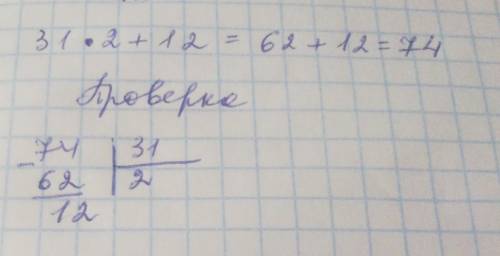 31 • 2 + 12 = 62 + 12 = 74
Проверка
- 74 | 31
62 | 2
12